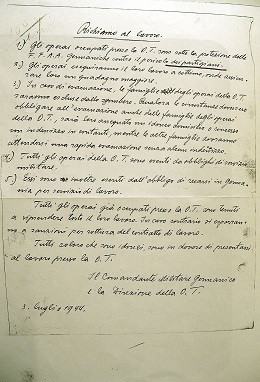 Richiamo al lavoro.
1.) Gli operai occupati presso la O.T. sono sotto la protezione delle
F.F.A.A. Germaniche contro il pericolo dei partigiani.
2.) Gli operai eseguiranno il loro lavoro a cottimo, onde assicu-
rare loro un guadagno maggiore.
3.) In caso di evacuazione, le famiglie degli operai della O.T.
saranno escluse dallo sgombero. Qualora le circostanze dovessero
obbligare all'evacuazione anche delle famiglie degli operai
della O.T., sarà loro assegnato un idoneo domicilio e concesso
un indennizzo in contanti, mentre le altre famiglie dovranno
attendersi una rapida evacuazione senza alcun indennizzo.
4.) Tutti gli operai della O.T. sono esenti da obblighi di servizio
militare.
5.) Essi sono inoltre esenti dall'obbligo di recarsi in Germa-
nia per ragioni di lavoro.
Tutti gli operai già occupati presso la O.T. sono tenuti
a riprendere tosto il loro lavoro. In caso contrario si esporran-
no a sanzioni per rottura del contratto di lavoro.
Tutti coloro che sono idonei, sono in dovere di presentarsi
al lavoro presso la O.T.
Il Comandante Militare Germanico
e la Direzione della O.T.
3. Luglio 1944.